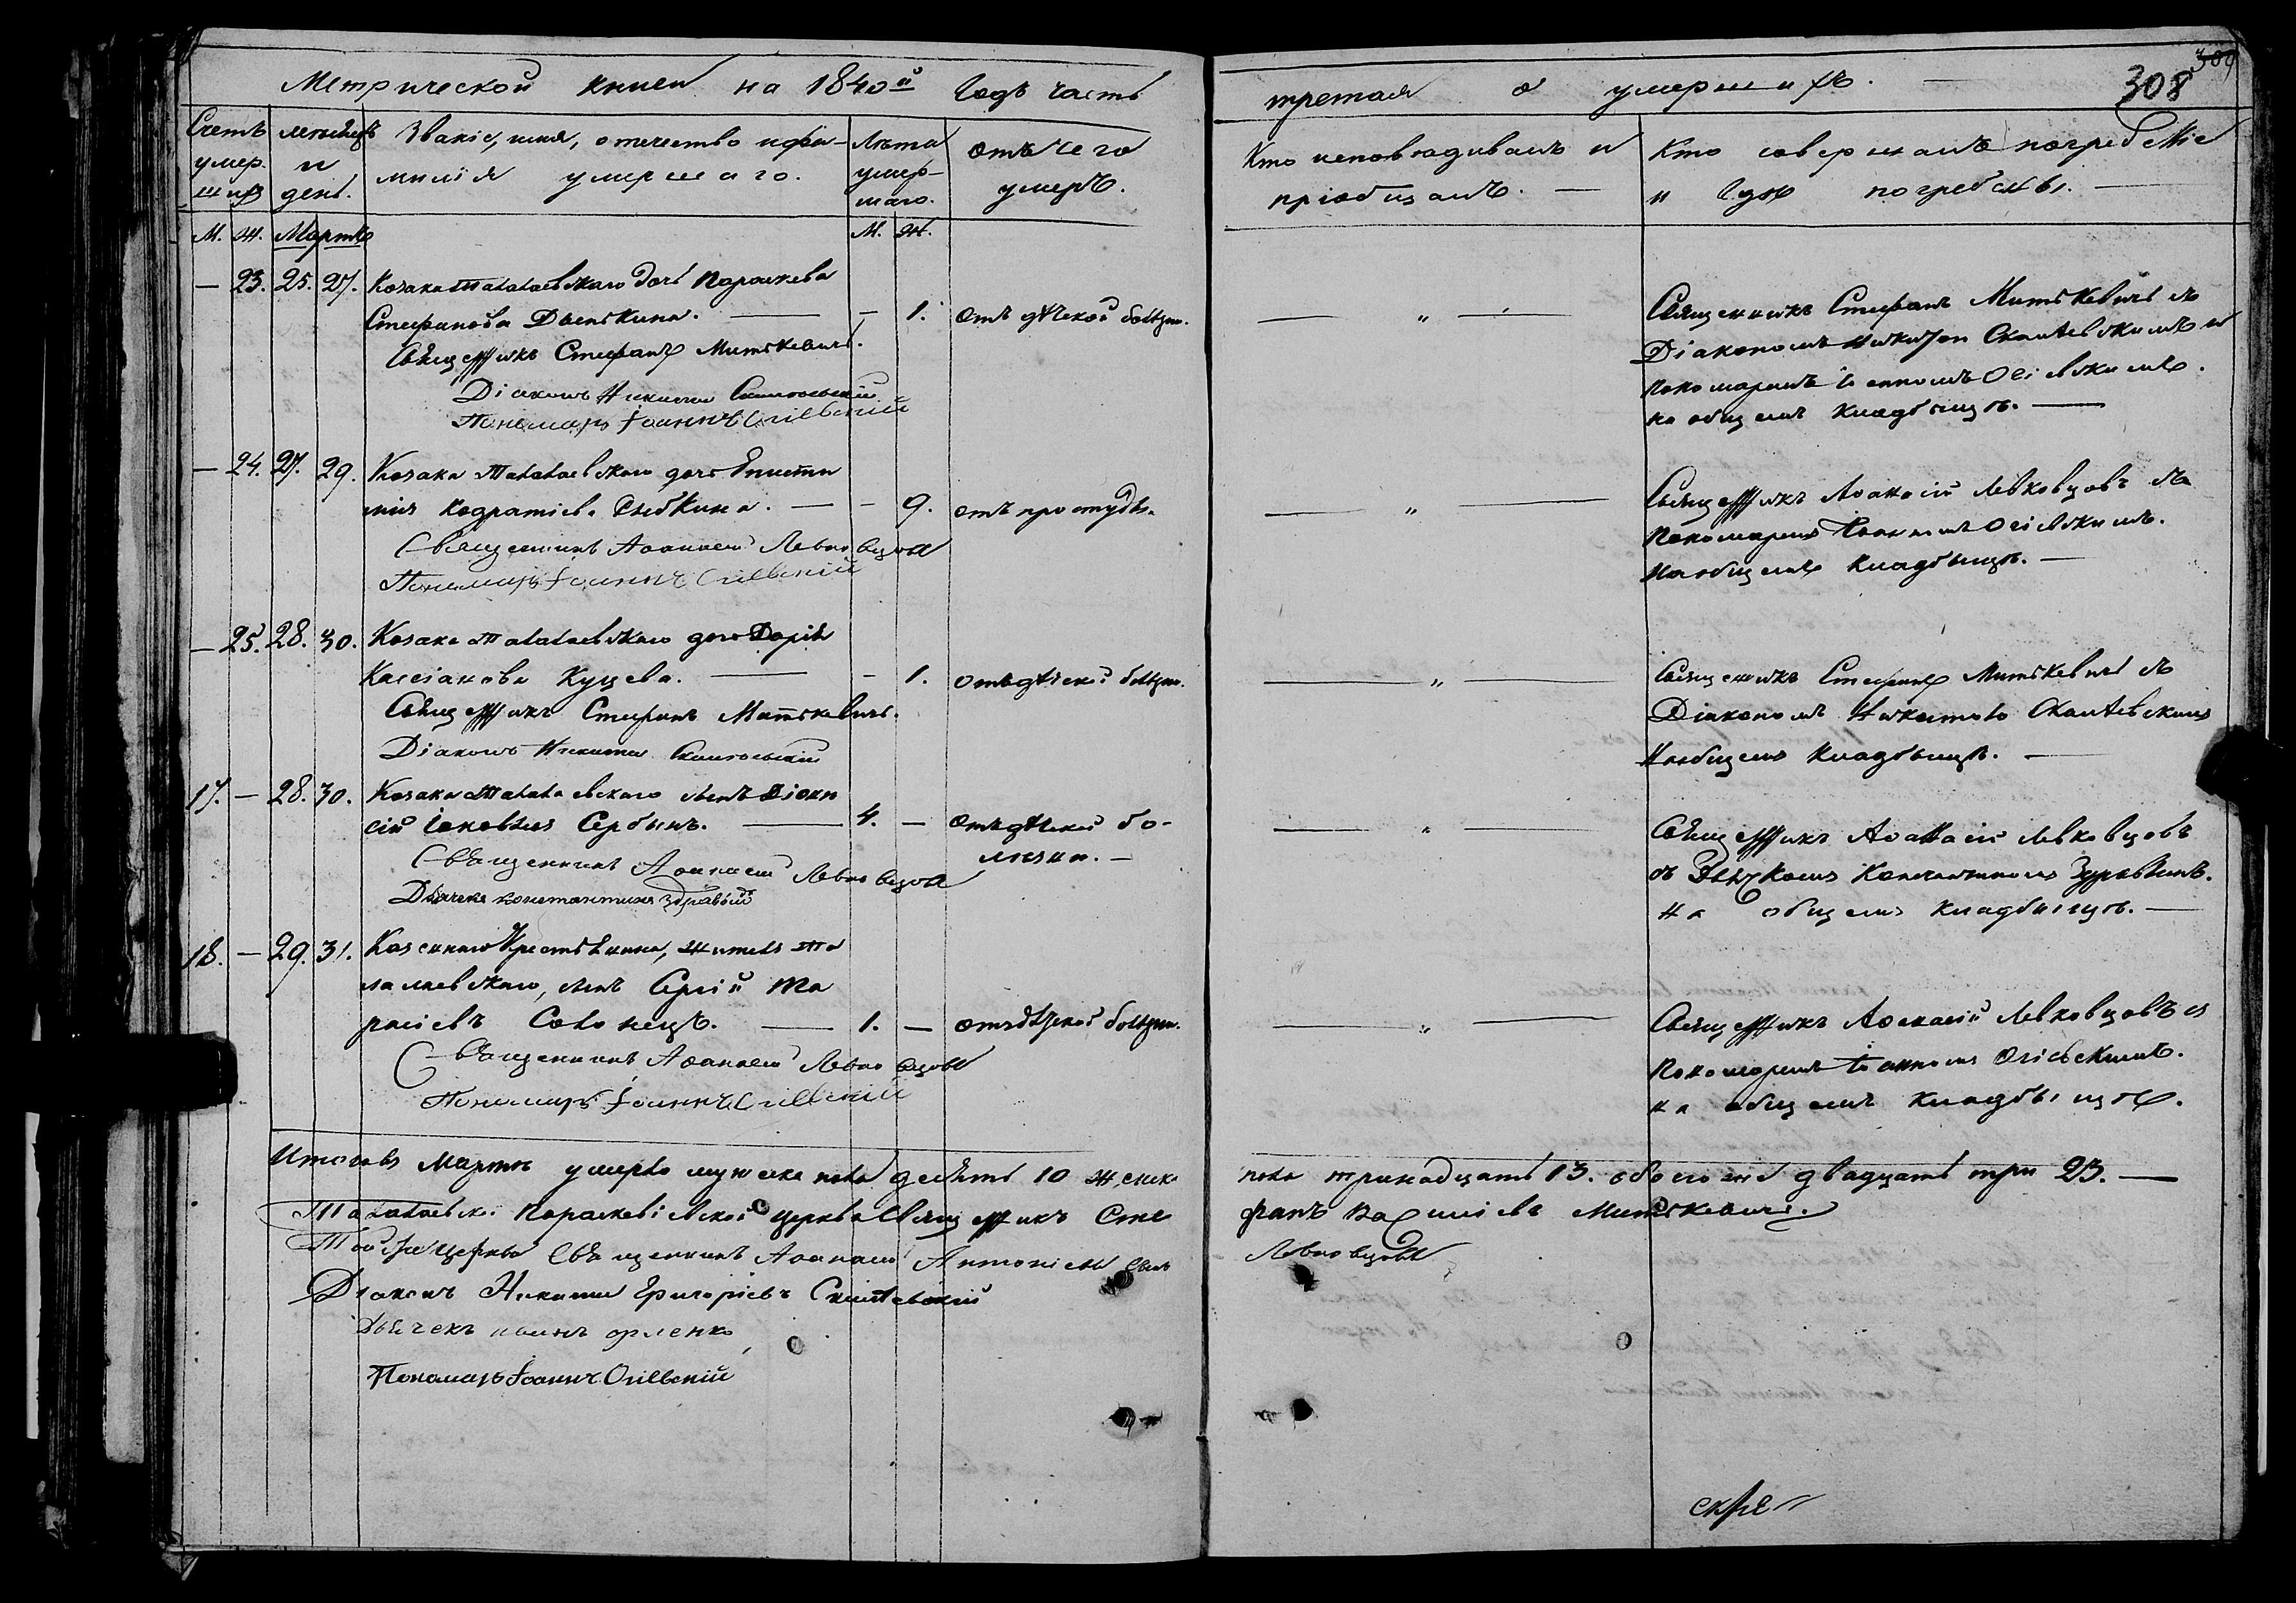 Метрической книги на 1840й годъ часть
третая о умершихъ. 308
309
Счетъ умер-шихъ
месяцъ и день.
Званіе, имя, отечество и фа-
милія умершаго.
Лѣта умер-шаго.
отъ чего
умеръ.
Кто исповѣдивалъ и
пріобщалъ.
Кто совершалъ погребеніе
и гдѣ погребены.
М. Ж. Мартъ М. Ж.
— 23. 25. 27. Козака Талалаевскаго дочь Параскева
Стефанова — 1. отъ дѣтской болѣзни. — „ —
Священникъ Стефанъ Митькевичъ.
Діаконъ Никита
Пономарь Іоаннъ Огіевскій
Священникъ Стефанъ Митькевичъ съ
Діакономъ и
пономаремъ Іоанномъ Огіевскимъ.
на общемъ кладбищѣ. —
— 24. 27. 29. Козака Талалаевскаго дочь Еписти
мія Кодратіева — 9. отъ простуды. — „ —
Священникъ Аѳанасій Левковцовъ
Пономарь Іоаннъ Огіевскій
Священникъ Аѳанасій Левковцовъ съ
пономаремъ Іоанномъ Огіевскимъ.
на общемъ кладбищѣ. —
— 25. 28. 30. Козака Талалаевскаго дочь Дарія
Кассіанова Куцева. — 1. отъ дѣтской болѣзни. — „ —
Священникъ Стефанъ Митькевичъ.
Діаконъ Никита
Священникъ Стефанъ Митькевичъ съ
Діакономъ
на общемъ кладбищѣ. —
17. — 28. 30. Козака Талалаевскаго сынъ Діони
сій Іаковлевъ Сербынъ. — 4. — отъ дѣтской бо-
лѣзни. — „ —
Священникъ Аѳанасій Левковцовъ
Дьячекъ Константинъ Здравый
Священникъ Аѳанасій Левковцовъ
съ Дьячкомъ Константиномъ
на общемъ кладбищѣ. —
18. — 29. 31. Казеннаго Крестьянина, жителя Та
лалаевскаго, сынъ Сергій Та
расіевъ — 1. — отъ дѣтской болѣзни. — „ —
Священникъ Аѳанасій Левковцовъ
Пономарь Іоаннъ Огіевскій
Священникъ Аѳанасій Левковцовъ съ
пономаремъ Іоанномъ Огіевскимъ.
на общемъ кладбищѣ.
Итого въ Мартѣ умерло мужеска пола десять 10 женска
пола тринадцать 13. обоего двадцать три 23. —
Талалаевской Параскевіевской церкви Священникъ Сте
фанъ Василіевъ Митькевичъ.
Той же церкви Священникъ Аѳанасій Антоніевъ сынъ
Левковцовъ
Діаконъ Никита Григоріевъ
Дьячекъ
Пономарь Іоаннъ Огіевскій
скрѣ